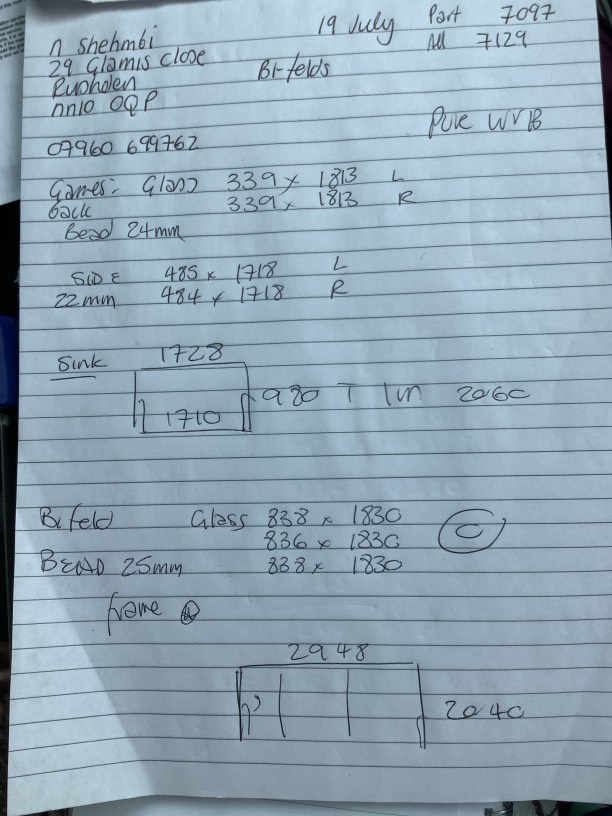 19 July Part 7097
n Shehmbi All 7129
29 Glamis close
Bi-folds
nn10 0QP
Pure
07960 699762
Games: Glass 339 x 1813 L
back 339 x 1813 R
Bead 24mm
SIDE 485 x 1718 L
22mm 484 x 1718 R
Sink 1728
980 T 1m 2060
1710
Bifold Glass 838 x 1830
836 x 1830 C
BEAD 25mm 838 x 1830
frame
2948
2040